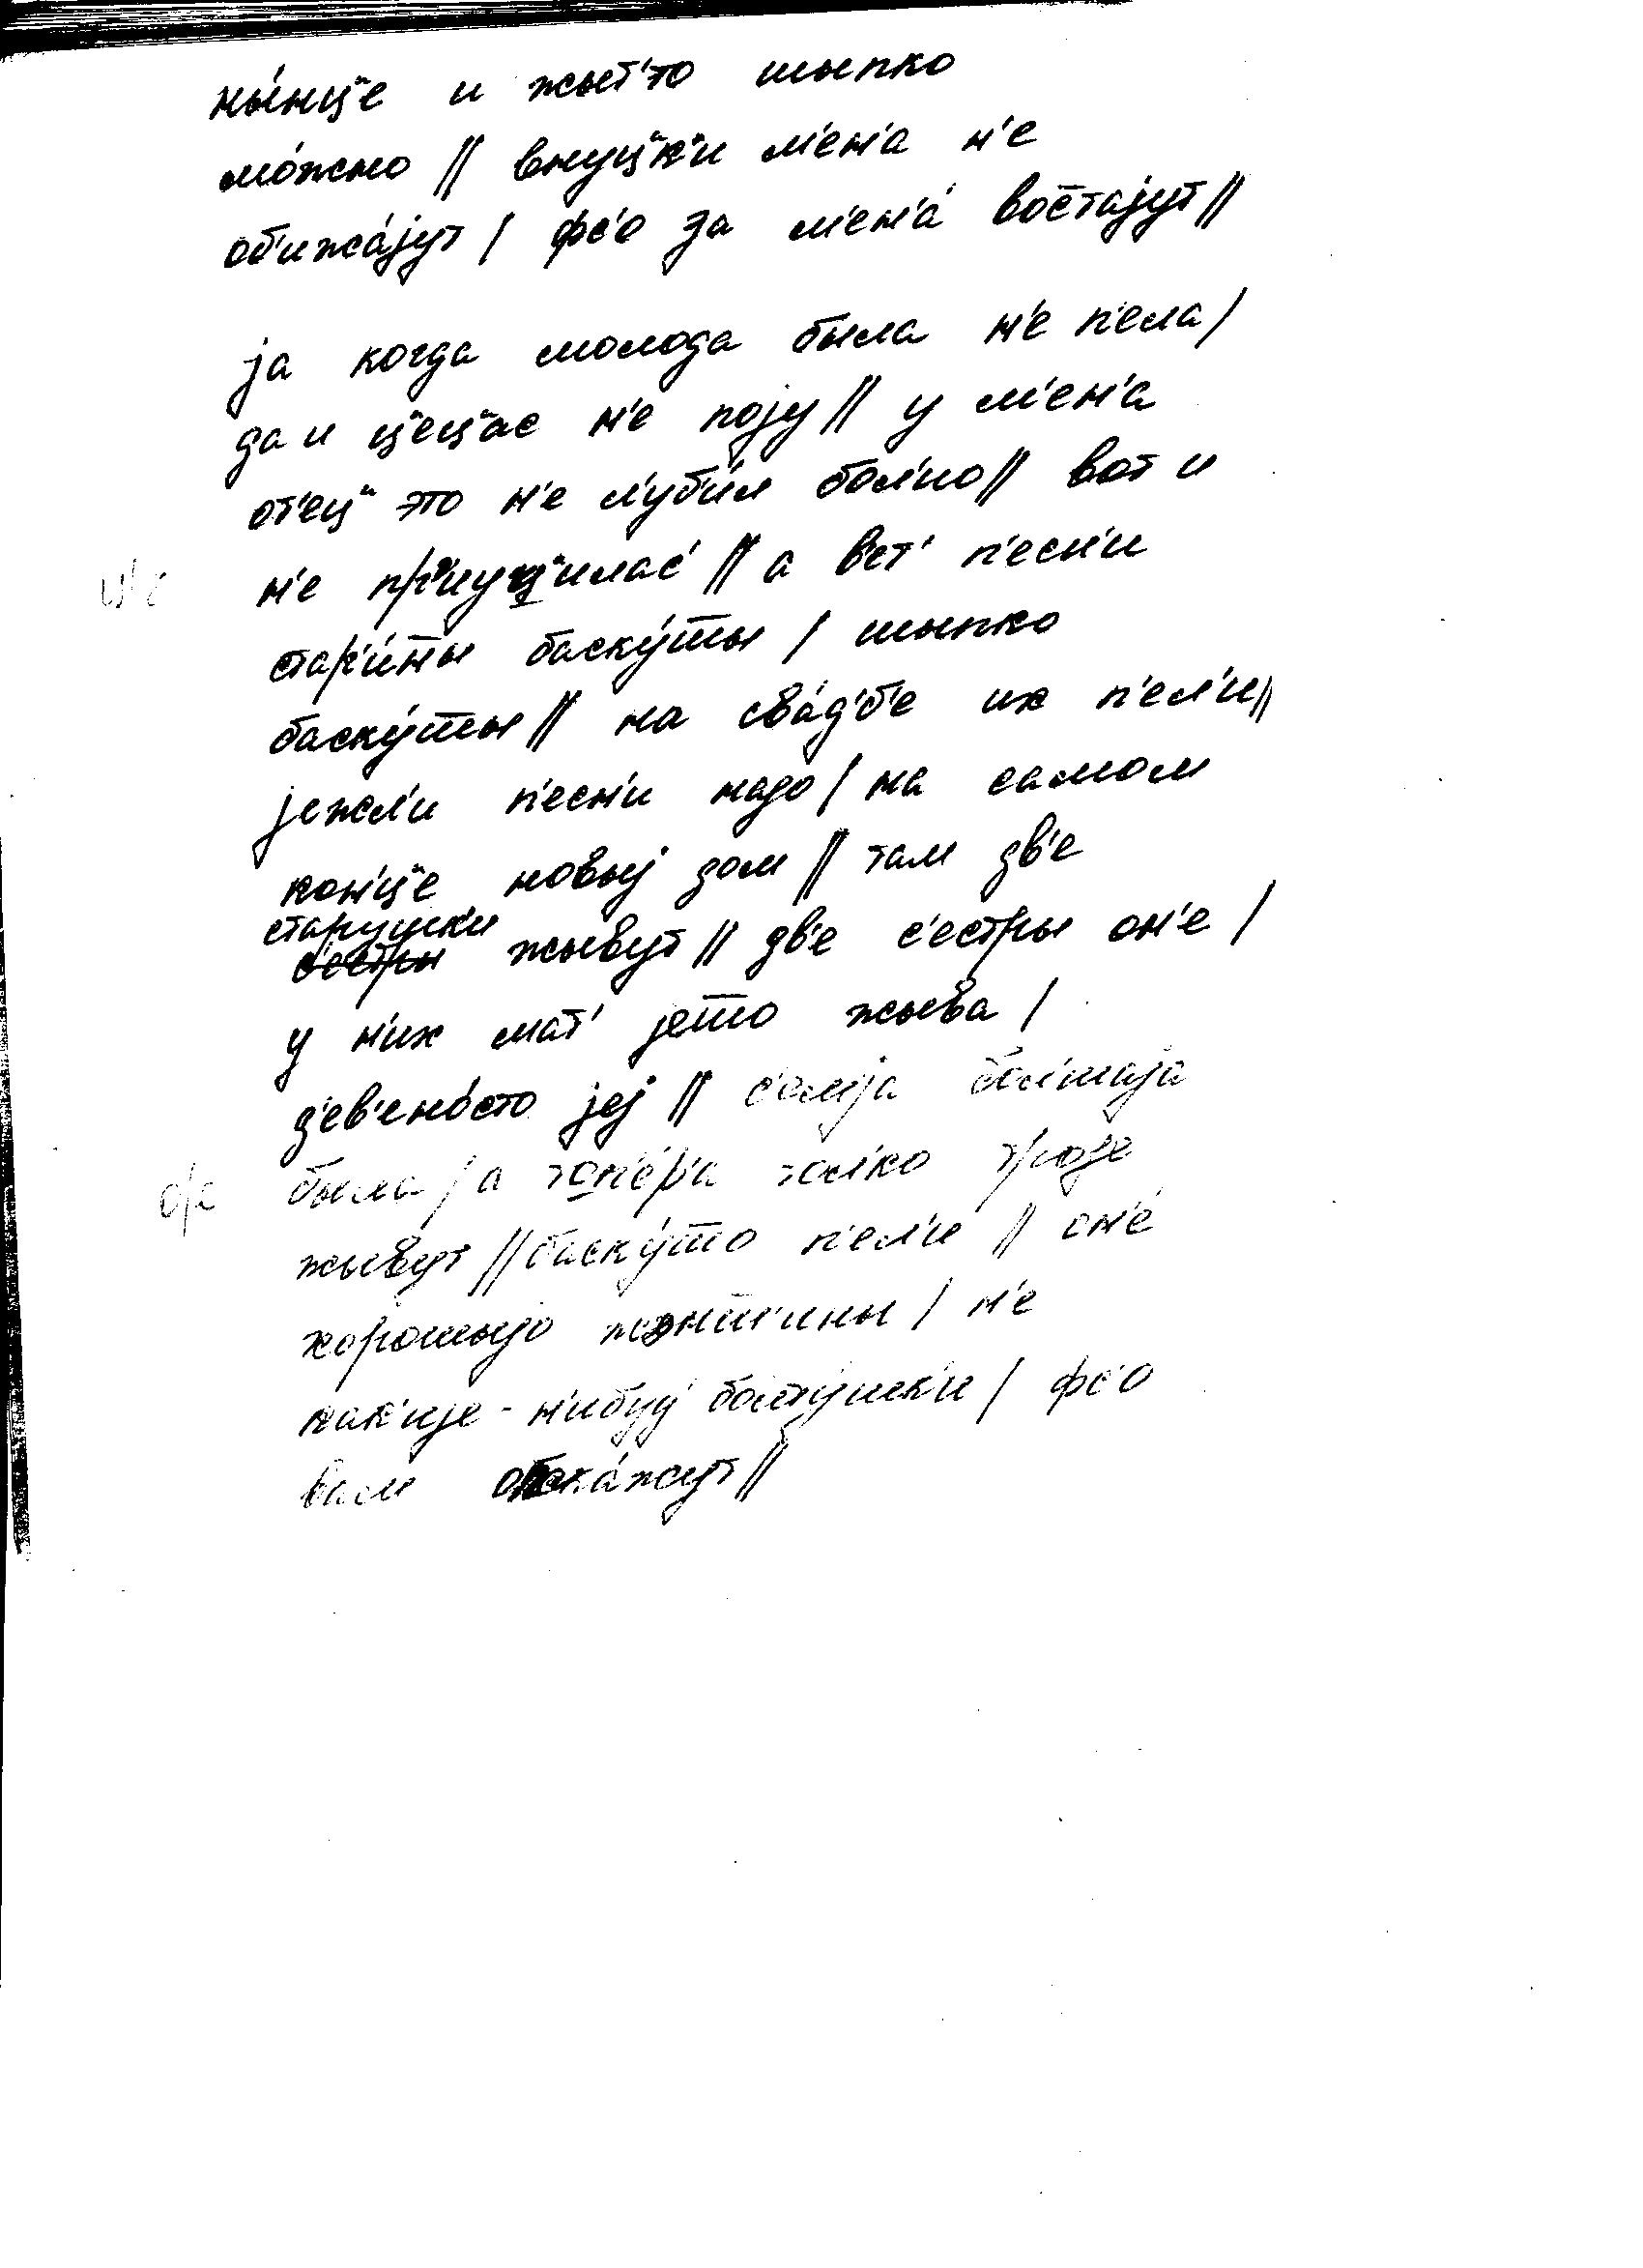 ны́нц"е и жыт'то шыпко
мо́жно // внуц"к'и м'ен'а н'е
об'ижа́jут / фс'о за м'ен'а́ вос̄таjут //
jа когда молода была н'е п'ела /
да и ц"ец"ас н'е поjу // у м'ен'а
от'ец" это н'е л'уб'и́л бол'но // вот и
н'е пр'иуц"илас' // а в'ет' п'ес'н'и
стар'и́н̄ы баску́ш̄ы / шыпко
баску́ш̄ы // на сва́д'б'е их п'ел'и //
jежл'и п'ес'н'и надо / на самом
кон'ц"е новыj дом // там дв'е
старушк'и жывут // дв'е с'естры он'е /
у н'их мат' jеш̄о жыва /
д'ев'ено́сто jеj // с'емjа бол'шаjа
была / а топ'е́р'а тол'ко троjе
жывут // баску́ш̄о п'ел'и // он'е́
хорошыjо жэнш'ины / н'е
как'иjе-н'ибуд' болтушк'и / фс'о
вам обска́жут //